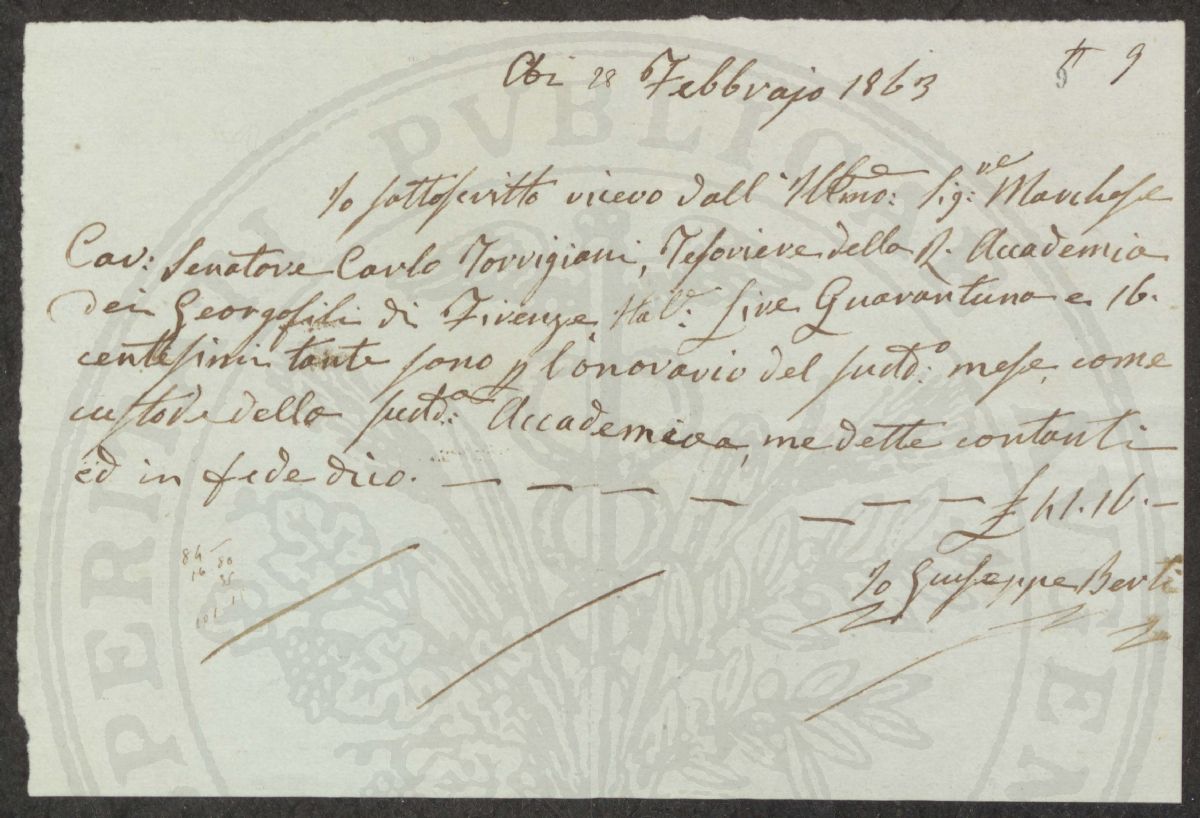 Adi 28 Febbrajo 1863
9 9
Io sottoscritto ricevo dall' Illmo: Sig:re Marchese
Cav: Senatore Carlo Torrigiani, Tesoriere della R. Accademia
dei Georgofili di Firenze Ital:e Lire Quarantuna e 16.
centesimi tante sono p l'onorario del sudd:o mese, come
custode della sudd:a Accademica, me dette contanti
ed in fede dico. — — — — — — — £ 41.16. —
84 —
16 80
35
101.15
Io Giuseppe Berti
PERITATI PVBLICAE